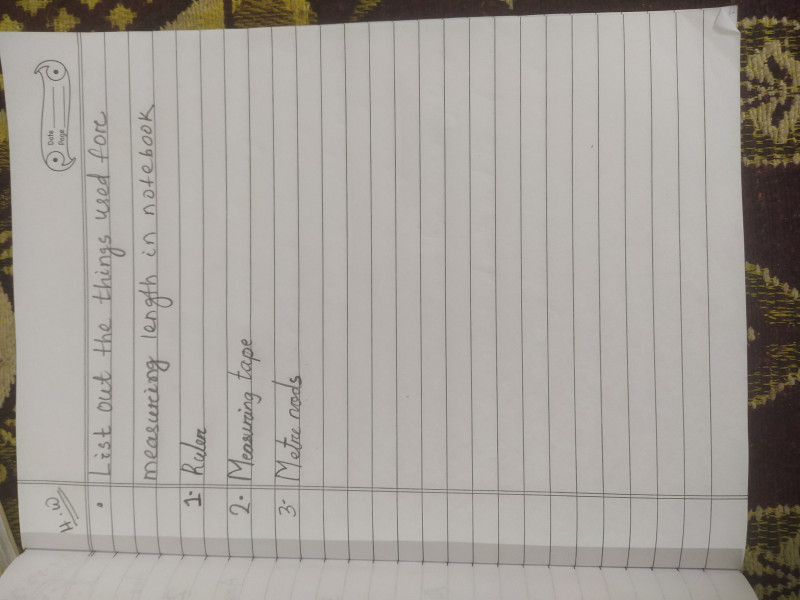 Date
Page
H.W
• List out the things used fore
measuring length in notebook
1. Ruler
2. Measuring tape
3. Metre rods